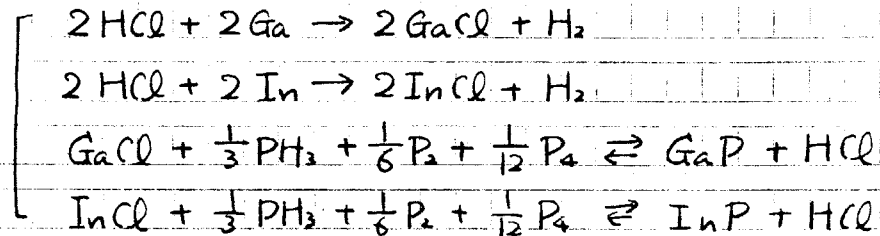 2HCl + 2Ga → 2GaCl + H₂
2HCl + 2In → 2InCl + H₂
GaCl + 1/3 PH₃ + 1/6 P₂ + 1/12 P₄ ⇄ GaP + HCl
InCl + 1/3 PH₃ + 1/6 P₂ + 1/12 P₄ ⇄ InP + HCl